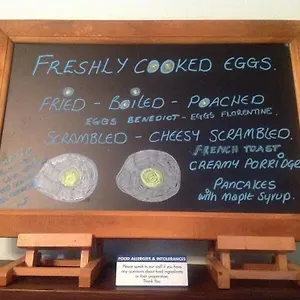 FRESHLY COOKED EGGS.
FRIED - BOILED - POACHED
EGGS BENEDICT - EGGS FLORENTINE
SCRAMBLED - CHEESY SCRAMBLED.
FRENCH TOAST
CREAMY PORRIDGE
PANCAKES
with MAPLE SYRUP.
FOOD ALLERGIES & INTOLERANCES
Please speak to our staff if you have
any questions about food ingredients
or their preparation.
Thank You